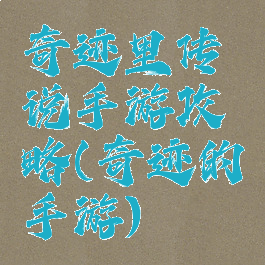 奇迹里传
说手游攻
略(奇迹的
手游)